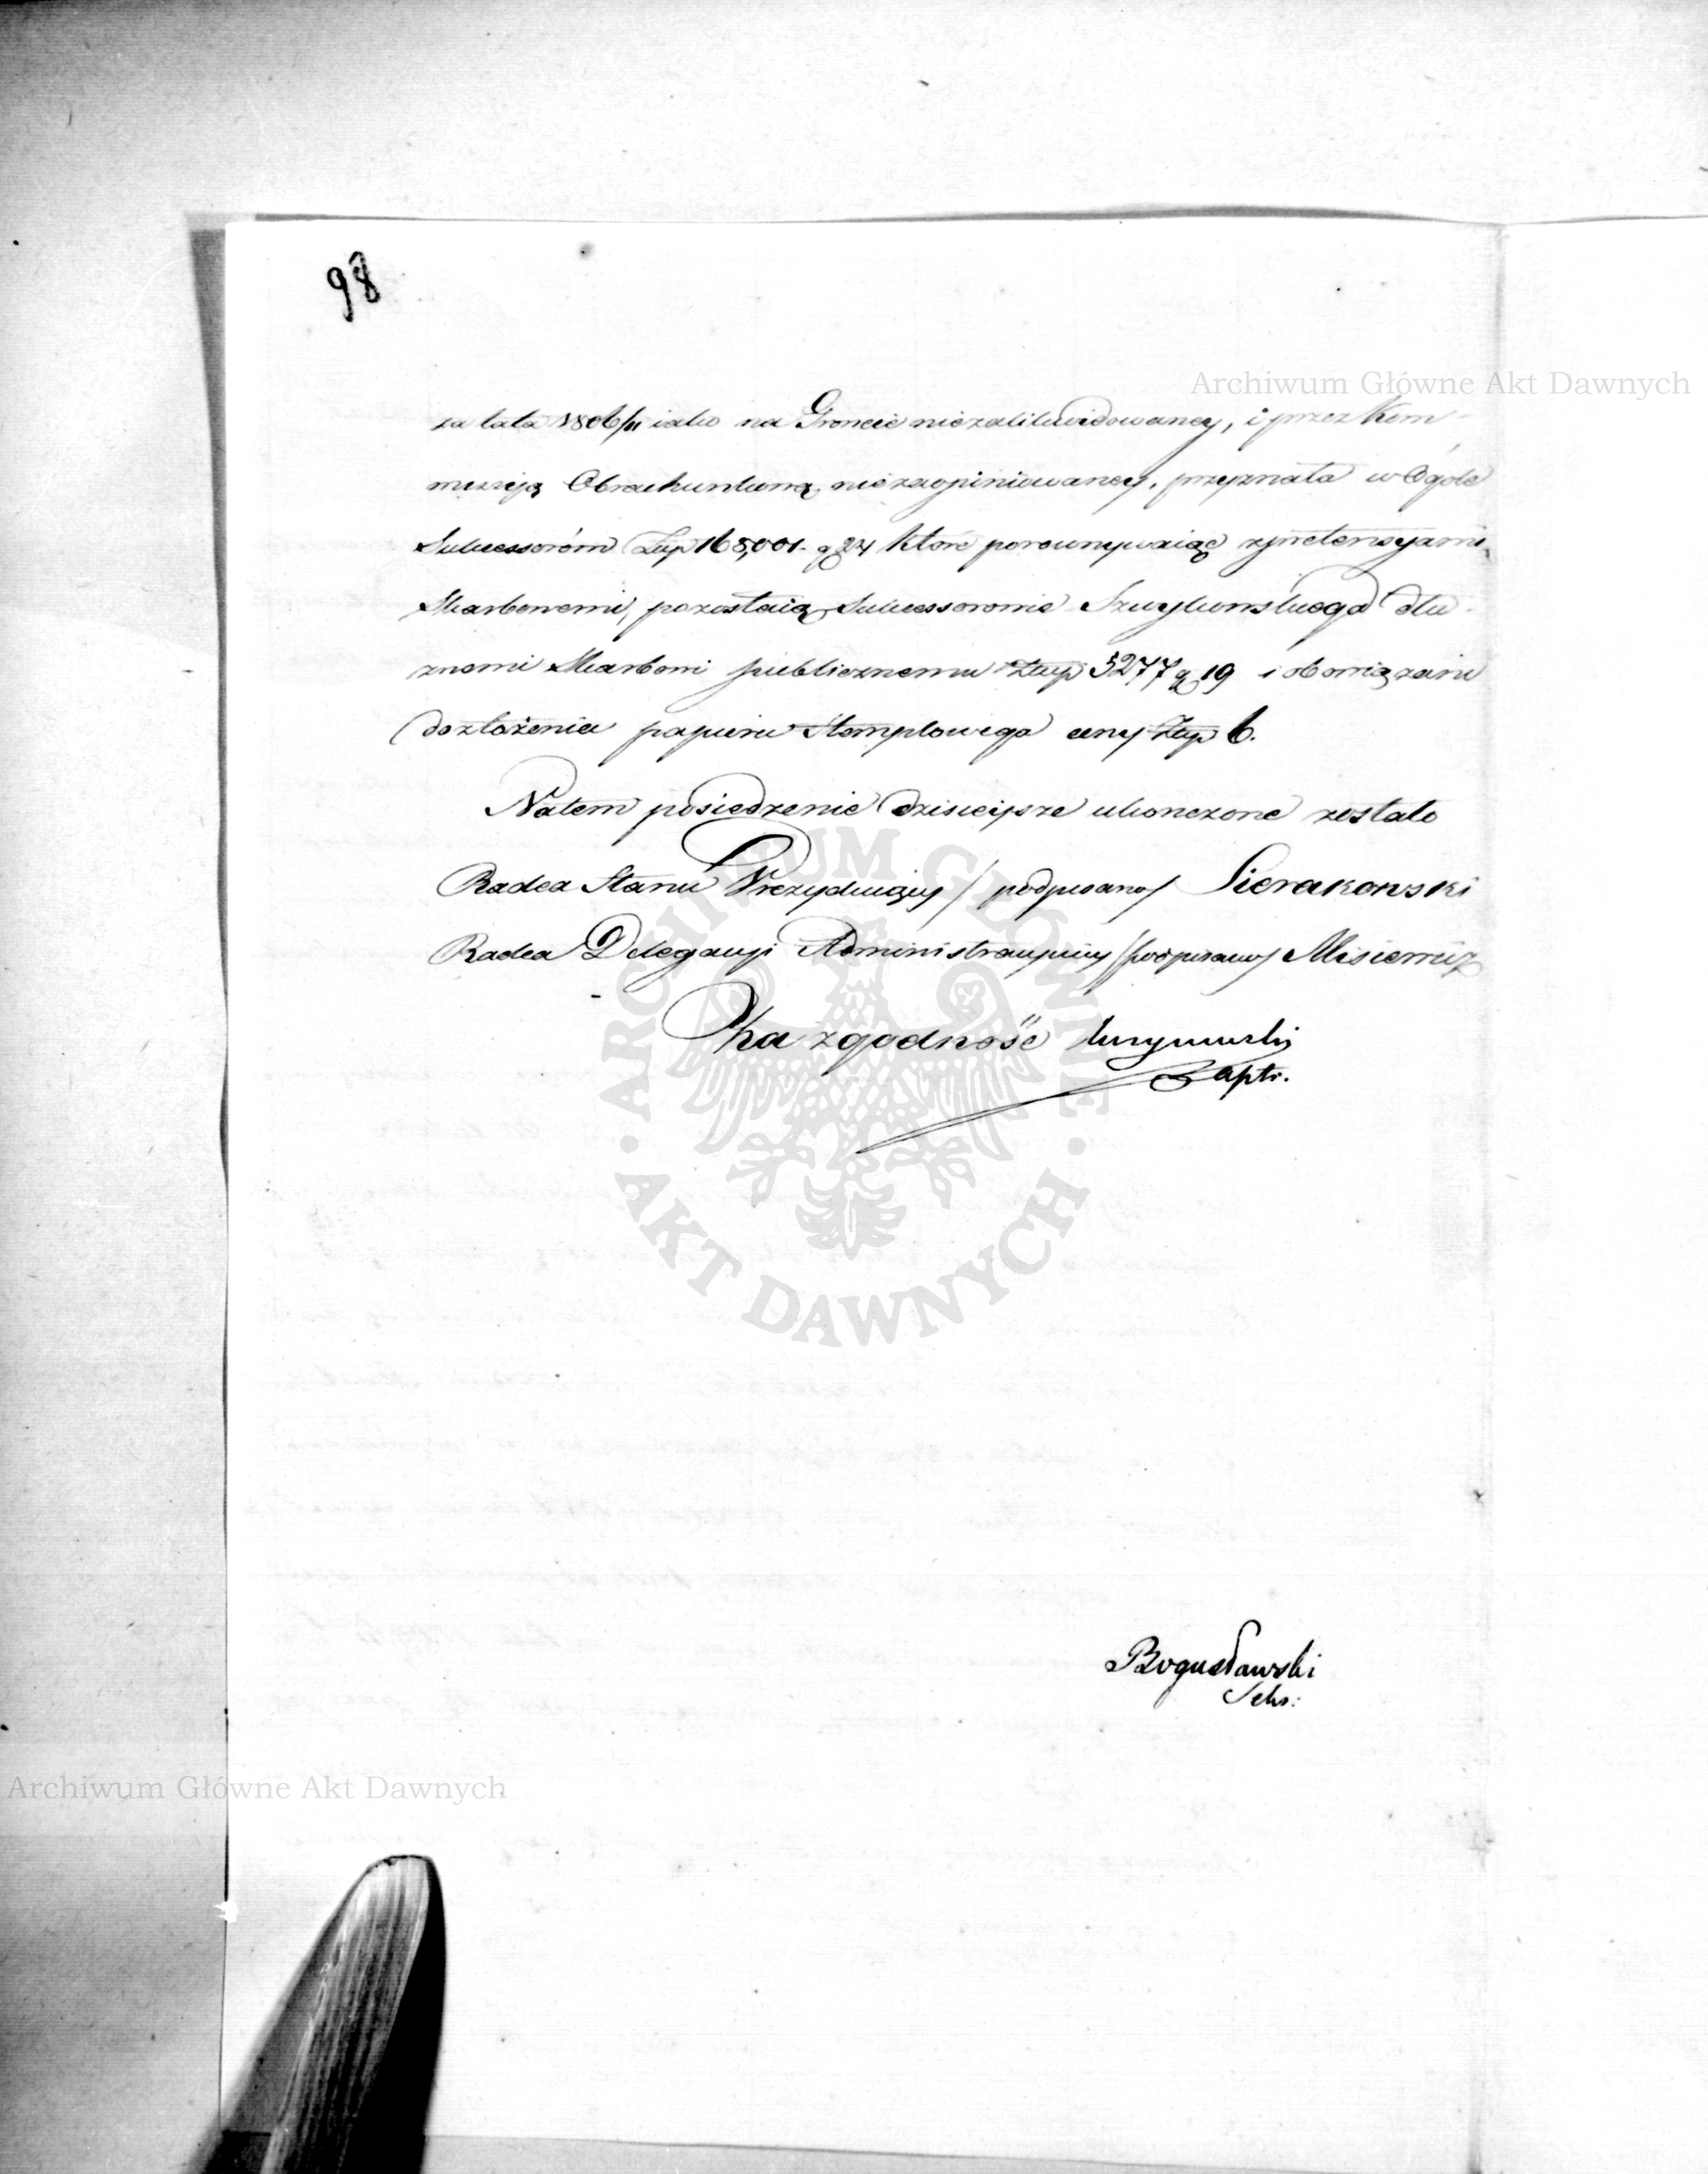 98
Archiwum Główne Akt Dawnych
za lata 1806/11 iako na Gróncie niezalikwidowaney, i przez Kom-
missyją Obrachunkową niezaopiniowaney, przyznała w Ogóle
Sukcessorom Złłp 165,001. g 24 które porownywaiąc zpretensyami
Skarbowemi, pozostaią Sukcessorowie dłu-
znemi Skarbowi publicznemu Złłp 5277 g 19 i obowiązani
dozłożenia papieru Stemplowego ceny Złłp 6.
Natem posiedzenie dzisieysze ukonczone zostało
Radca Stanu Prezyduiący / podpisano / Sierakowski
Radca Delegacyi Administracyiney / podpisano / Misiewicz
Za zgodność
Bogusławski
Sekr:
Archiwum Główne Akt Dawnych
ARCHIWUM GŁÓWNE
AKT DAWNYCH